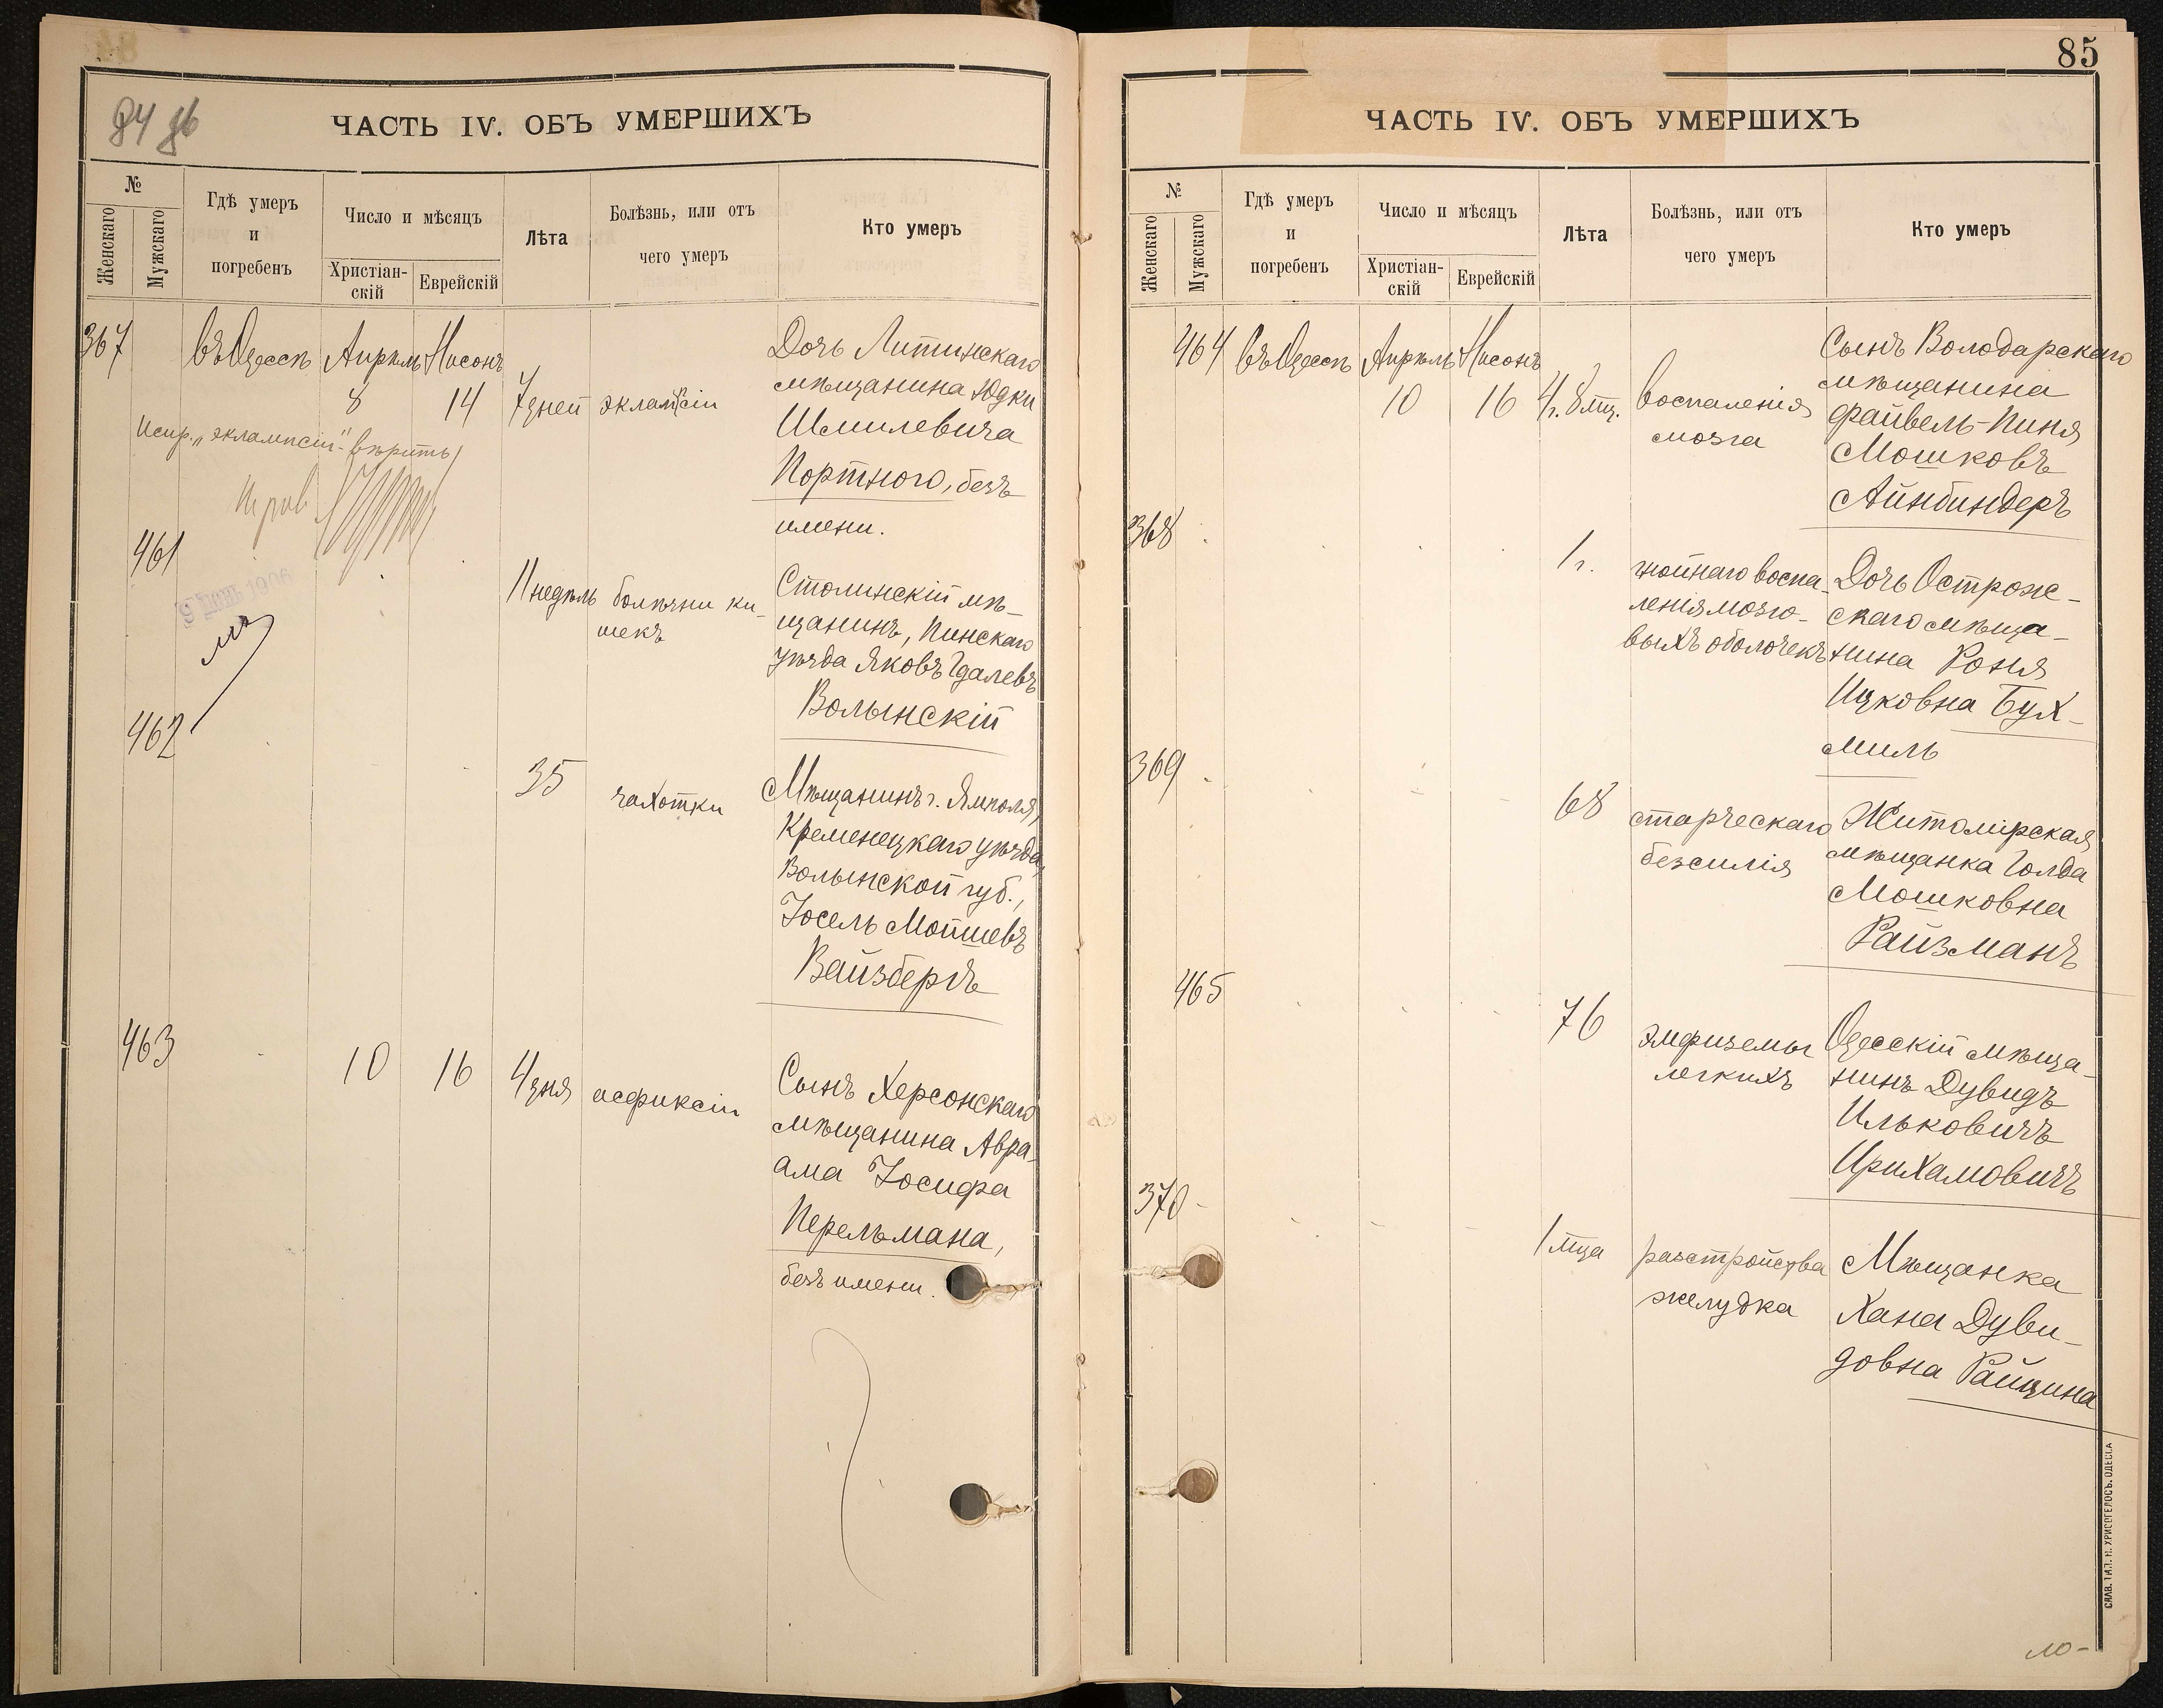 84 об
ЧАСТЬ IV. ОБЪ УМЕРШИХЪ
№
Женскаго
Мужскаго
Гдѣ умеръ
и
погребенъ
Число и мѣсяцъ
Христіан-
скій
Еврейскій
Лѣта
Болѣзнь, или отъ
чего умеръ
Кто умеръ
367 въ Одессѣ Апрѣль Нисонъ
8 14 7 дней эклампсіи
Дочь Литинскаго
мѣщанина Юдки
Шмилевича
Портного, безъ
имени.
Испр. „эклампсіи" вѣрить
461
11 недѣль болѣзни ки-
шекъ
Столинскій мѣ-
щанинъ, Пинскаго
уѣзда Яковъ Гдалевъ
Волынскій
9 1906
462
35 чахотки
Мѣщанинъ г. Ямполя,
Кременецкаго уѣзда,
Волынской губ.,
Іосель Мойшевъ
Вайзбергъ
463 10 16 4 дня асфиксіи
Сынъ Херсонскаго
мѣщанина Авра-
ама Іосифа
Перельмана,
безъ имени.
85
ЧАСТЬ IV. ОБЪ УМЕРШИХЪ
№
Женскаго
Мужскаго
Гдѣ умеръ
и
погребенъ
Число и мѣсяцъ
Христіан-
скій
Еврейскій
Лѣта
Болѣзнь, или отъ
чего умеръ
Кто умеръ
464 въ Одессѣ Апрѣль Нисонъ
10 16 4 г. 8 мц. воспаленія
мозга
Сынъ Володарскаго
мѣщанина
Файвель-Пиня
Мошковъ
Айнбиндеръ
368
1 г. гнойнаго воспа-
ленія мозго-
выхъ оболочекъ
Дочь Острож-
скаго мѣща-
нина Роня
Ицковна Бух-
миль
369
68 старческаго
безсилія
Житомірская
мѣщанка Голда
Мошковна
Райзманъ
465
76 эмфиземы
легкихъ
Одесскій мѣща-
нинъ Дувидъ
Ильковичъ
Ирихамовичъ
370
1 мца разстройства
желудка
Мѣщанка
Хана Дуви-
довна Райцина
СЛАВ. ТИП. Н. ХРИСОГЕЛОСЪ. ОДЕССА